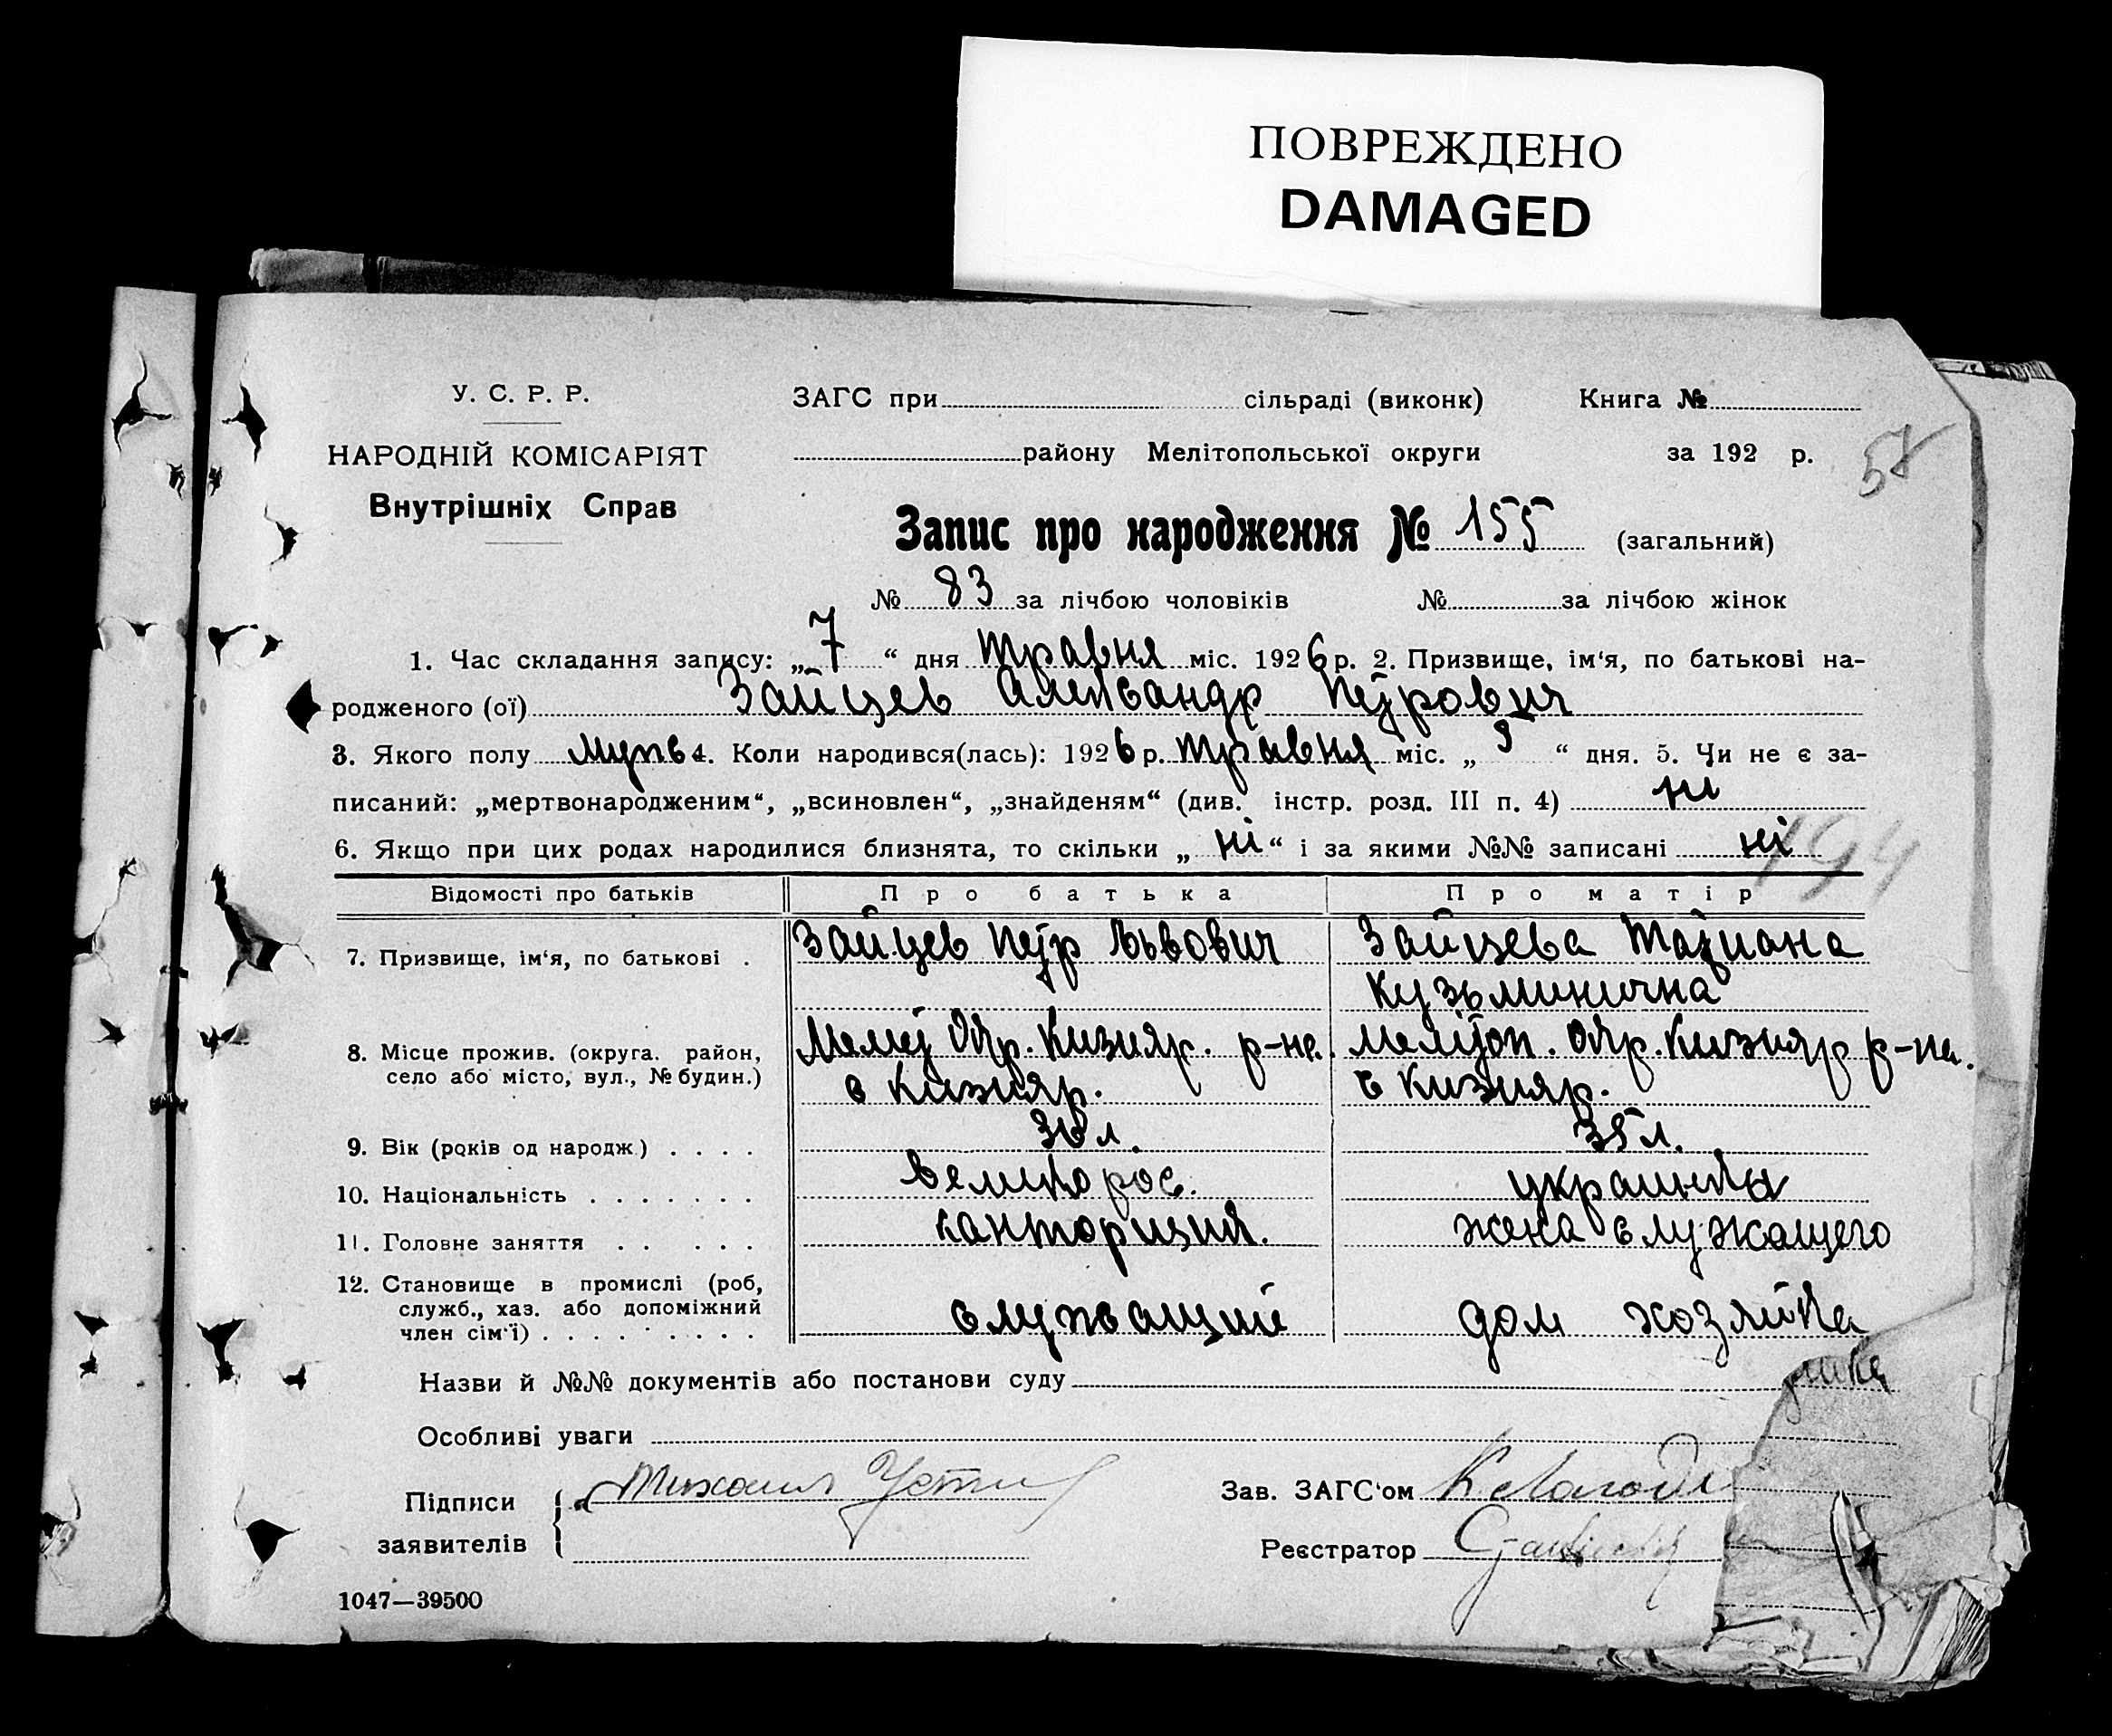 ПОВРЕЖДЕНО
DAMAGED
У. С. Р. Р.
НАРОДНІЙ КОМІСАРІЯТ
Внутрішніх Справ
ЗАГС при сільраді (виконк) Книга №
району Мелітопольської округи за 192 р.
Запис про народження № 155 (загальний)
№ 83 за лічбою чоловіків № за лічбою жінок
1. Час складання запису: „7“ дня травня міс. 1926 р. 2. Призвище, ім‘я, по батькові на-
родженого (ої) Зайцев Александр Петрович
3. Якого полу 4. Коли народився(лась): 1926 р. травня міс. „ “ дня. 5. Чи не є за-
писаний: „мертвонародженим“, „всиновлен“, „знайденям“ (див. інстр. розд. III п. 4) ні
6. Якщо при цих родах народилися близнята, то скільки „ні“ і за якими №№ записані ні
194
Відомості про батьків Про батька Про матір
7. Призвище, ім‘я, по батькові . Зайцев Петр Львович Зайцева Татиана
Кузьминична
8. Місце прожив. (округа. район, Мелит Окр. Кизияр. р-на. Меліton. Окр. Кизияр р-на.
село або місто, вул., № будин.) с Кизияр. с Кизияр.
9. Вік (років од народж.) . . . . л. 35 л.
10. Національність . . . . . . . великорос. украинка
11. Головне заняття . . . . . канторщик. жена служащего
12. Становище в промислі (роб,
служб., хаз. або допоміжний
член сім‘ї) . . . . . . . . . служащий дом хозяйка
Назви й №№ документів або постанови суду
Особливі уваги
Підписи Михаил
заявителів
Зав. ЗАГС‘ом
Реєстратор
1047—39500